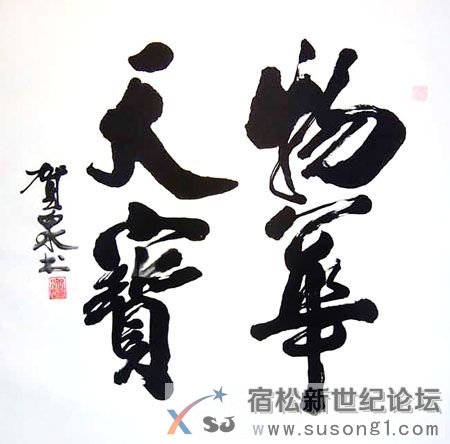 物華
天寶
賀西泉书
SJ 宿松新世纪论坛
www.susong1.com